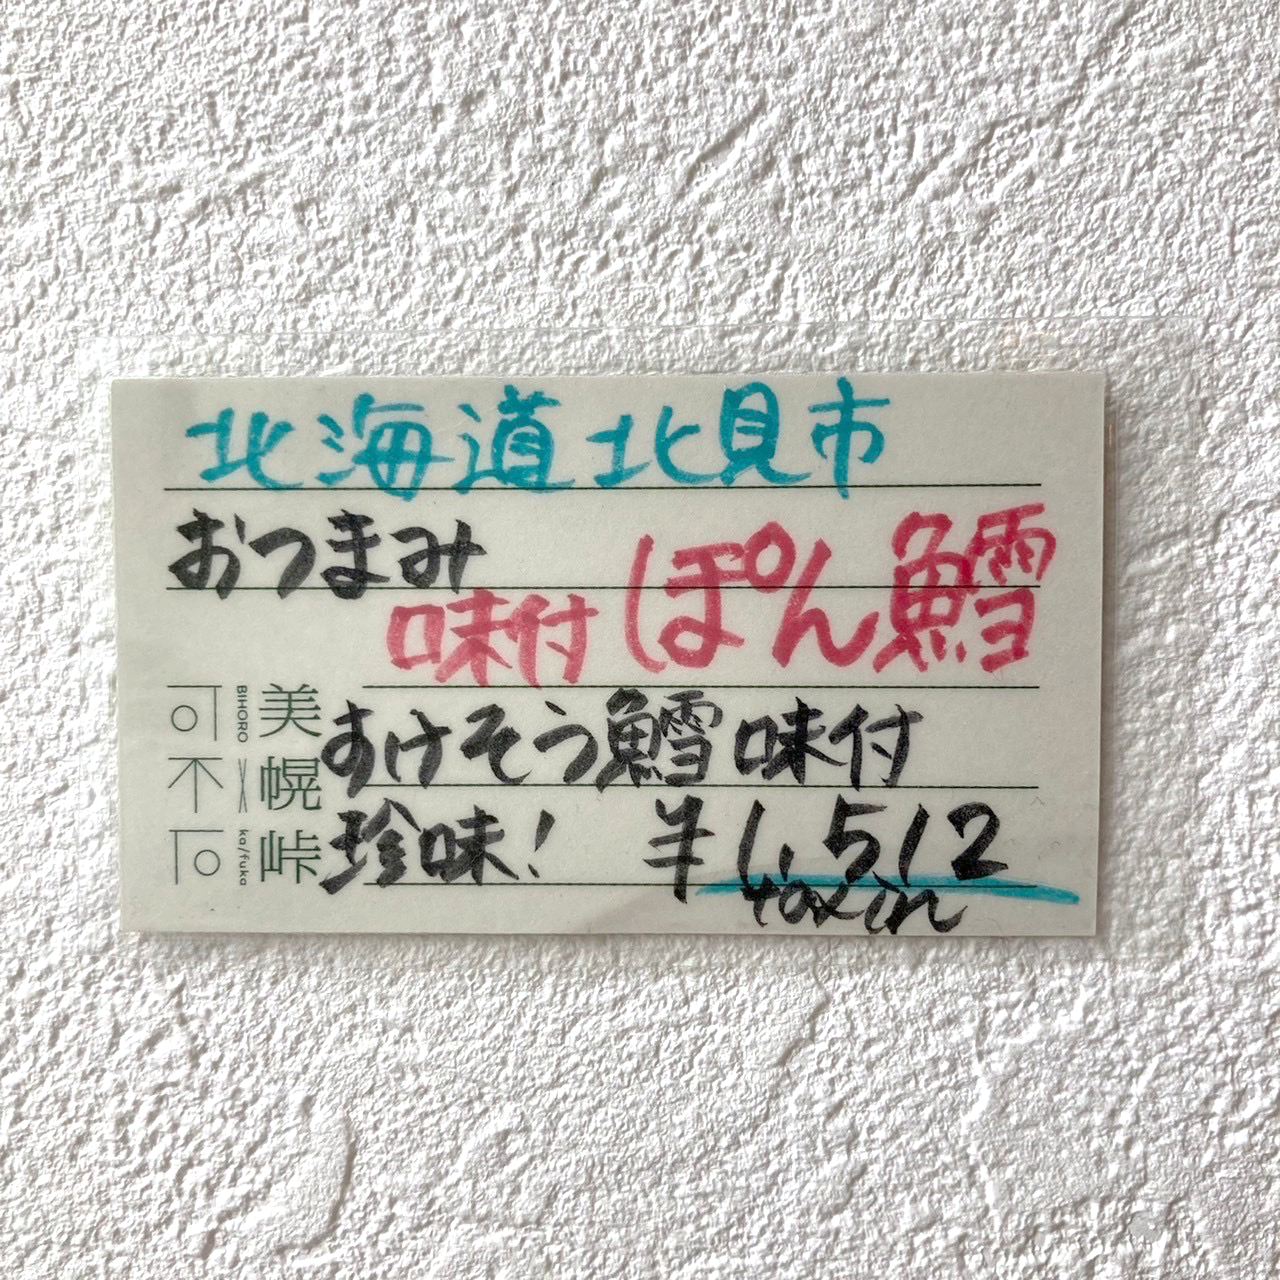 北海道北見市
おつまみ
味付ぽん鱈
すけそう鱈味付
珍味! ¥1,512
taxin
美幌峠
BIHORO × ka/fuka
可不可